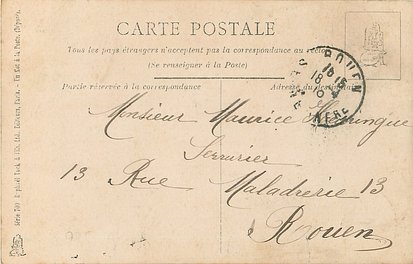 CARTE POSTALE
Tous les pays étrangers n'acceptent pas la correspondance au recto
(Se renseigner à la Poste)
Partie réservée à la correspondance
Adresse du destinataire
ROUEN
18 15
18
INFRE
Monsieur Maurice
Serrurier
13 Rue Maladrerie 13
Rouen
Raphael Tuck & fils, Ltd, Paris.